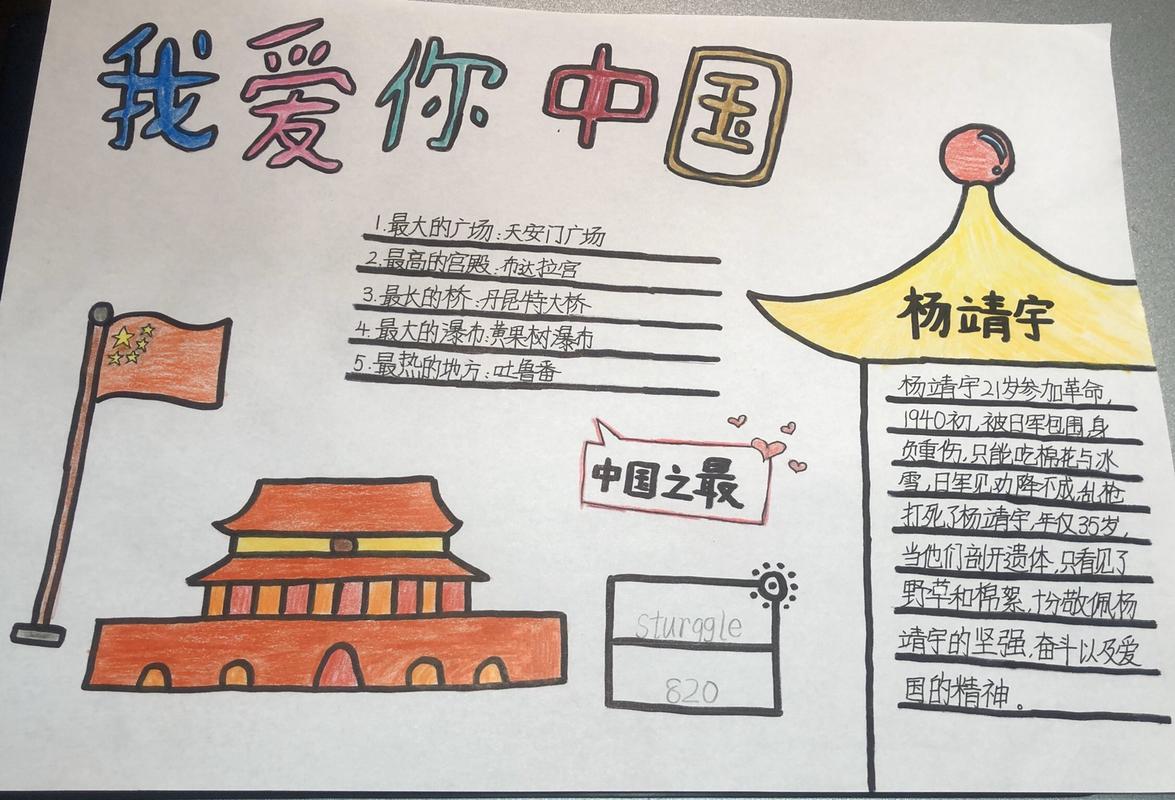 我爱你中国
1.最大的广场:天安门广场
2.最高的宫殿:布达拉宫
3.最长的桥:丹昆特大桥
4.最大的瀑布:黄果树瀑布
5.最热的地方:吐鲁番
中国之最
sturggle
820
杨靖宇
杨靖宇21岁参加革命,
1940初,被日军包围,身
负重伤,只能吃棉花与冰
雪,日军见劝降不成,乱枪
打死了杨靖宇,年仅35岁,
当他们剖开遗体,只看见了
野草和棉絮,十分敬佩杨
靖宇的坚强,奋斗以及爱
国的精神。